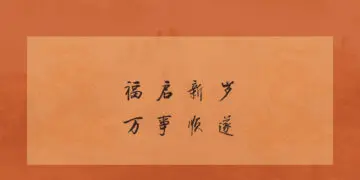 福启新岁
万事顺遂